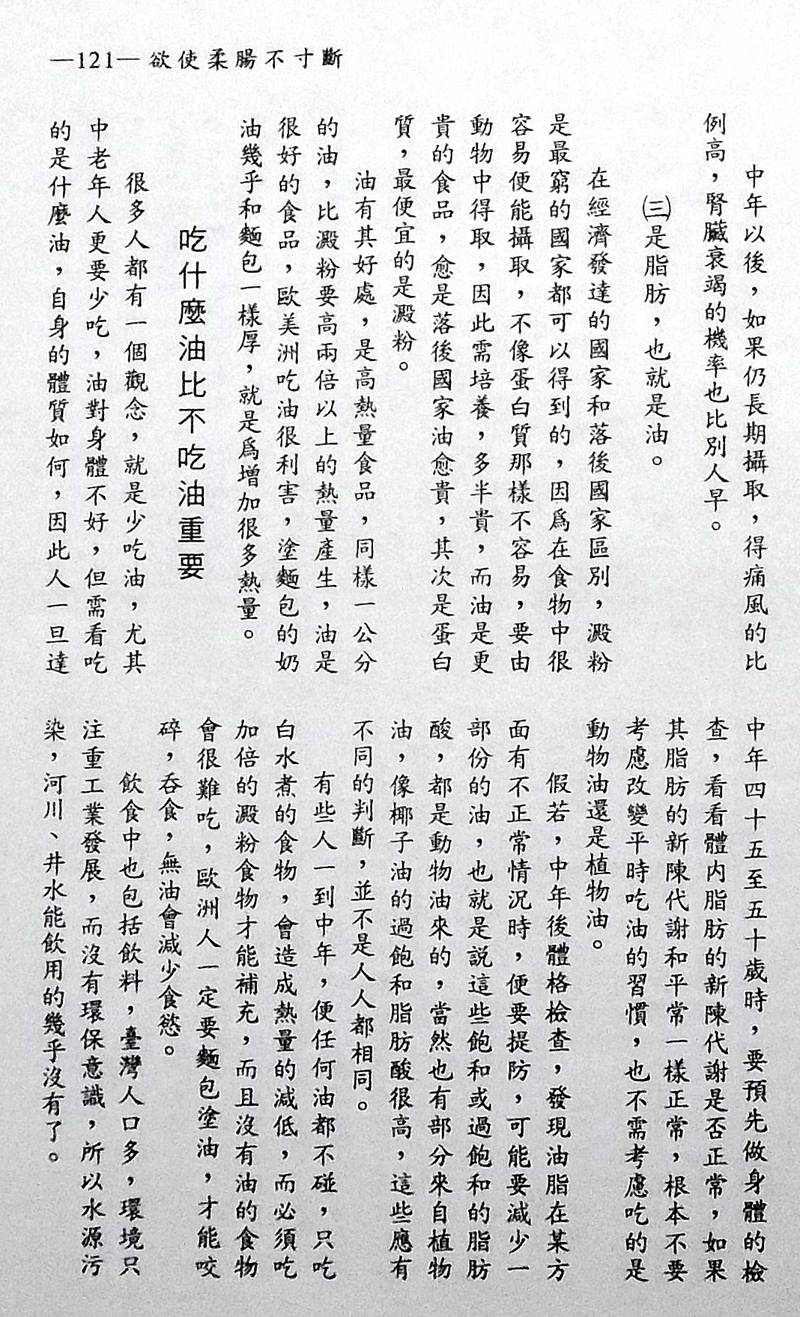 —121— 欲使柔腸不寸斷
中年以後，如果仍長期攝取，得痛風的比
例高，腎臟衰竭的機率也比別人早。
㈢是脂肪，也就是油。
在經濟發達的國家和落後國家區別，澱粉
是最窮的國家都可以得到的，因爲在食物中很
容易便能攝取，不像蛋白質那樣不容易，要由
動物中得取，因此需培養，多半貴，而油是更
貴的食品，愈是落後國家油愈貴，其次是蛋白
質，最便宜的是澱粉。
油有其好處，是高熱量食品，同樣一公分
的油，比澱粉要高兩倍以上的熱量產生，油是
很好的食品，歐美洲吃油很利害，塗麵包的奶
油幾乎和麵包一樣厚，就是爲增加很多熱量。
吃什麼油比不吃油重要
很多人都有一個觀念，就是少吃油，尤其
中老年人更要少吃，油對身體不好，但需看吃
的是什麼油，自身的體質如何，因此人一旦達
中年四十五至五十歲時，要預先做身體的檢
查，看看體内脂肪的新陳代謝是否正常，如果
其脂肪的新陳代謝和平常一樣正常，根本不要
考慮改變平時吃油的習慣，也不需考慮吃的是
動物油還是植物油。
假若，中年後體格檢查，發現油脂在某方
面有不正常情況時，便要提防，可能要減少一
部份的油，也就是説這些飽和或過飽和的脂肪
酸，都是動物油來的，當然也有部分來自植物
油，像椰子油的過飽和脂肪酸很高，這些應有
不同的判斷，並不是人人都相同。
有些人一到中年，便任何油都不碰，只吃
白水煮的食物，會造成熱量的減低，而必須吃
加倍的澱粉食物才能補充，而且沒有油的食物
會很難吃，歐洲人一定要麵包塗油，才能咬
碎，吞食，無油會減少食慾。
飲食中也包括飲料，臺灣人口多，環境只
注重工業發展，而沒有環保意識，所以水源污
染，河川、井水能飲用的幾乎沒有了。